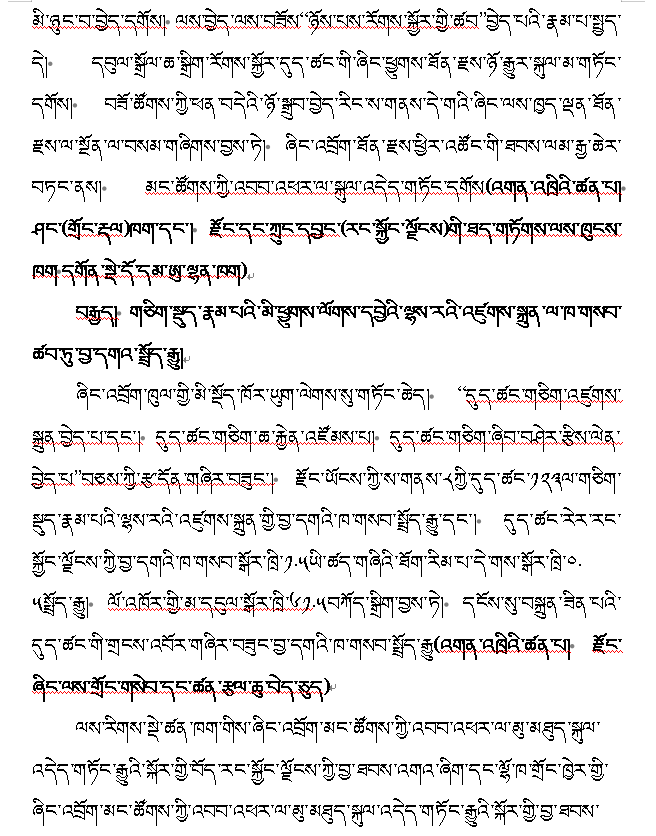 མི་ཉུང་བ་བྱེད་དགོས། ལས་བྱེད་ལས་བཟོས“ཉོས་པས་རོགས་སྐྱོར་གྱི་ཚབ”བྱེད་པའི་རྣམ་པ་སྤྱད་
དེ། དབུལ་སྒྲོལ་ཆ་སྒྲིག་རོགས་སྐྱོར་དུད་ཚང་གི་ཞིང་ཕྱུགས་ཐོན་རྫས་ཉོ་རྒྱུར་སྐུལ་མ་གཏོང་
དགོས། བཟོ་ཚོགས་ཀྱི་ཕན་བདེའི་ཉོ་སྒྲུབ་བྱེད་རིང་ས་གནས་དེ་གའི་ཞིང་ལས་ཁྱད་ལྡན་ཐོན་
རྫས་ལ་སྔོན་ལ་བསམ་གཞིགས་བྱས་ཏེ། ཞིང་འབྲོག་ཐོན་རྫས་ཕྱིར་འཚོང་གི་ཐབས་ལམ་རྒྱ་ཆེར་
བཏང་ནས། མང་ཚོགས་ཀྱི་འབབ་འཕར་ལ་སྐུལ་འདེད་གཏོང་དགོས(འགན་འཁྲིའི་ཚན་པ།
ཤང་(གྲོང་རྡལ)ཁག་དང་། རྫོང་དང་ཀྲུང་དབྱང་(རང་སྐྱོང་ལྗོངས)གི་ཐད་གཏོགས་ལས་ཁུངས་
ཁག དགོན་སྡེ་དོ་དམ་ཨུ་ལྷན་ཁག)
བརྒྱད། གཅིག་སྡུད་རྣམ་པའི་མི་ཕྱུགས་ལོགས་དབྱེའི་ལྷས་རའི་འཛུགས་སྐྲུན་ལ་ཁ་གསབ་
ཚབ་ཏུ་བྱ་དགའ་སྤྲོད་རྒྱུ།
ཞིང་འབྲོག་ཁུལ་གྱི་མི་སྡོད་ཁོར་ཡུག་ལེགས་སུ་གཏོང་ཆེད། “དུད་ཚང་གཅིག་འཛུགས་
སྐྲུན་བྱེད་པ་དང་། དུད་ཚང་གཅིག་ཆ་རྐྱེན་འཛོམས་པ། དུད་ཚང་གཅིག་ཞིབ་བཤེར་རྩིས་ལེན་
བྱེད་པ”བཅས་ཀྱི་རྩ་དོན་གཞིར་བཟུང་། རྫོང་ཡོངས་ཀྱི་ས་གནས་༨ཀྱི་དུད་ཚང་༡༢༣ལ་གཅིག་
སྡུད་རྣམ་པའི་ལྷས་རའི་འཛུགས་སྐྲུན་གྱི་བྱ་དགའི་ཁ་གསབ་སྤྲོད་རྒྱུ་དང་། དུད་ཚང་རེར་རང་
སྐྱོང་ལྗོངས་ཀྱི་བྱ་དགའི་ཁ་གསབ་སྒོར་ཁྲི་༡.༥ཡི་ཚད་གཞིའི་ཐོག་རིམ་པ་དེ་གས་སྒོར་ཁྲི་༠.
༥སྤྲོད་རྒྱུ། ལོ་འཁོར་གྱི་མ་དངུལ་སྒོར་ཁྲི་༦༡.༥བཀོད་སྒྲིག་བྱས་ཏེ། དངོས་སུ་བསྐྲུན་ཟིན་པའི་
དུད་ཚང་གི་གྲངས་འབོར་གཞིར་བཟུང་བྱ་དགའི་ཁ་གསབ་སྤྲོད་རྒྱུ(འགན་འཁྲིའི་ཚན་པ། རྫོང་
ཞིང་ལས་གྲོང་གསེབ་དང་ཚན་རྩལ་ཆུ་བེད་ཅུད)
ལས་རིགས་སྡེ་ཚན་ཁག་གིས་ཞིང་འབྲོག་མང་ཚོགས་ཀྱི་འབབ་འཕར་ལ་མུ་མཐུད་སྐུལ་
འདེད་གཏོང་རྒྱུའི་སྐོར་གྱི་བོད་རང་སྐྱོང་ལྗོངས་ཀྱི་བྱ་ཐབས་འགའ་ཞིག་དང་ལྷོ་ཁ་གྲོང་ཁྱེར་གྱི་
ཞིང་འབྲོག་མང་ཚོགས་ཀྱི་འབབ་འཕར་ལ་མུ་མཐུད་སྐུལ་འདེད་གཏོང་རྒྱུའི་སྐོར་གྱི་བྱ་ཐབས་